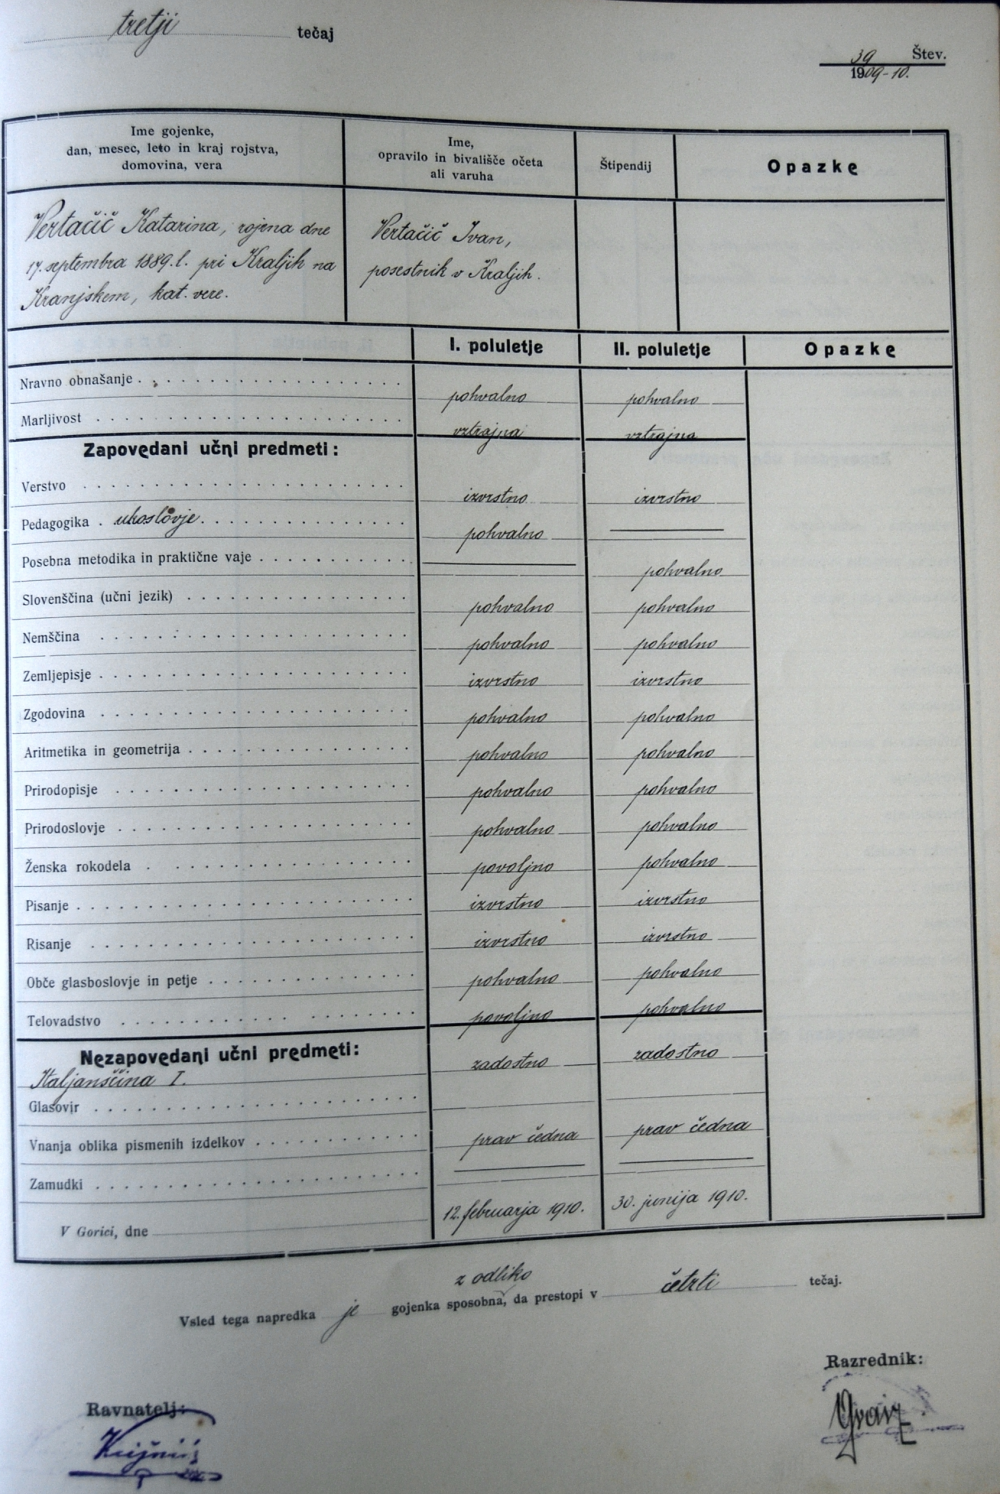 tretji tečaj
39 Štev.
1909-10.
Ime gojenke,
dan, mesec, leto in kraj rojstva,
domovina, vera
Ime,
opravilo in bivališče očeta
ali varuha
Štipendij
Opazke
Vertačič Katarina, rojena dne
17. septembra 1889. l. pri Kraljih na
Kranjskem, kat. vere.
Vertačič Ivan,
posestnik v Kraljih.
I. poluletje II. poluletje Opazke
Nravno obnašanje pohvalno pohvalno
Marljivost vztrajna vztrajna
Zapovedani učni predmeti:
Verstvo izvrstno izvrstno
Pedagogika ukoslovje pohvalno
Posebna metodika in praktične vaje pohvalno
Slovenščina (učni jezik) pohvalno pohvalno
Nemščina pohvalno pohvalno
Zemljepisje izvrstno izvrstno
Zgodovina pohvalno pohvalno
Aritmetika in geometrija pohvalno pohvalno
Prirodopisje pohvalno pohvalno
Prirodoslovje pohvalno pohvalno
Ženska rokodela povoljno pohvalno
Pisanje izvrstno izvrstno
Risanje izvrstno izvrstno
Obče glasboslovje in petje pohvalno pohvalno
Telovadstvo povoljno pohvalno
Nezapovedani učni predmeti:
Italjanščina I. zadostno zadostno
Glasovir
Vnanja oblika pismenih izdelkov prav čedna prav čedna
Zamudki
V Gorici, dne 12. februarja 1910. 30. junija 1910.
z odliko
Vsled tega napredka je gojenka sposobna, da prestopi v četrti tečaj.
Razrednik:
Ravnatelj:
Križnič